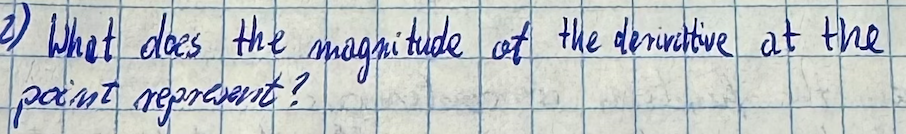 2) What does the magnitude of the derivative at the
point represent?